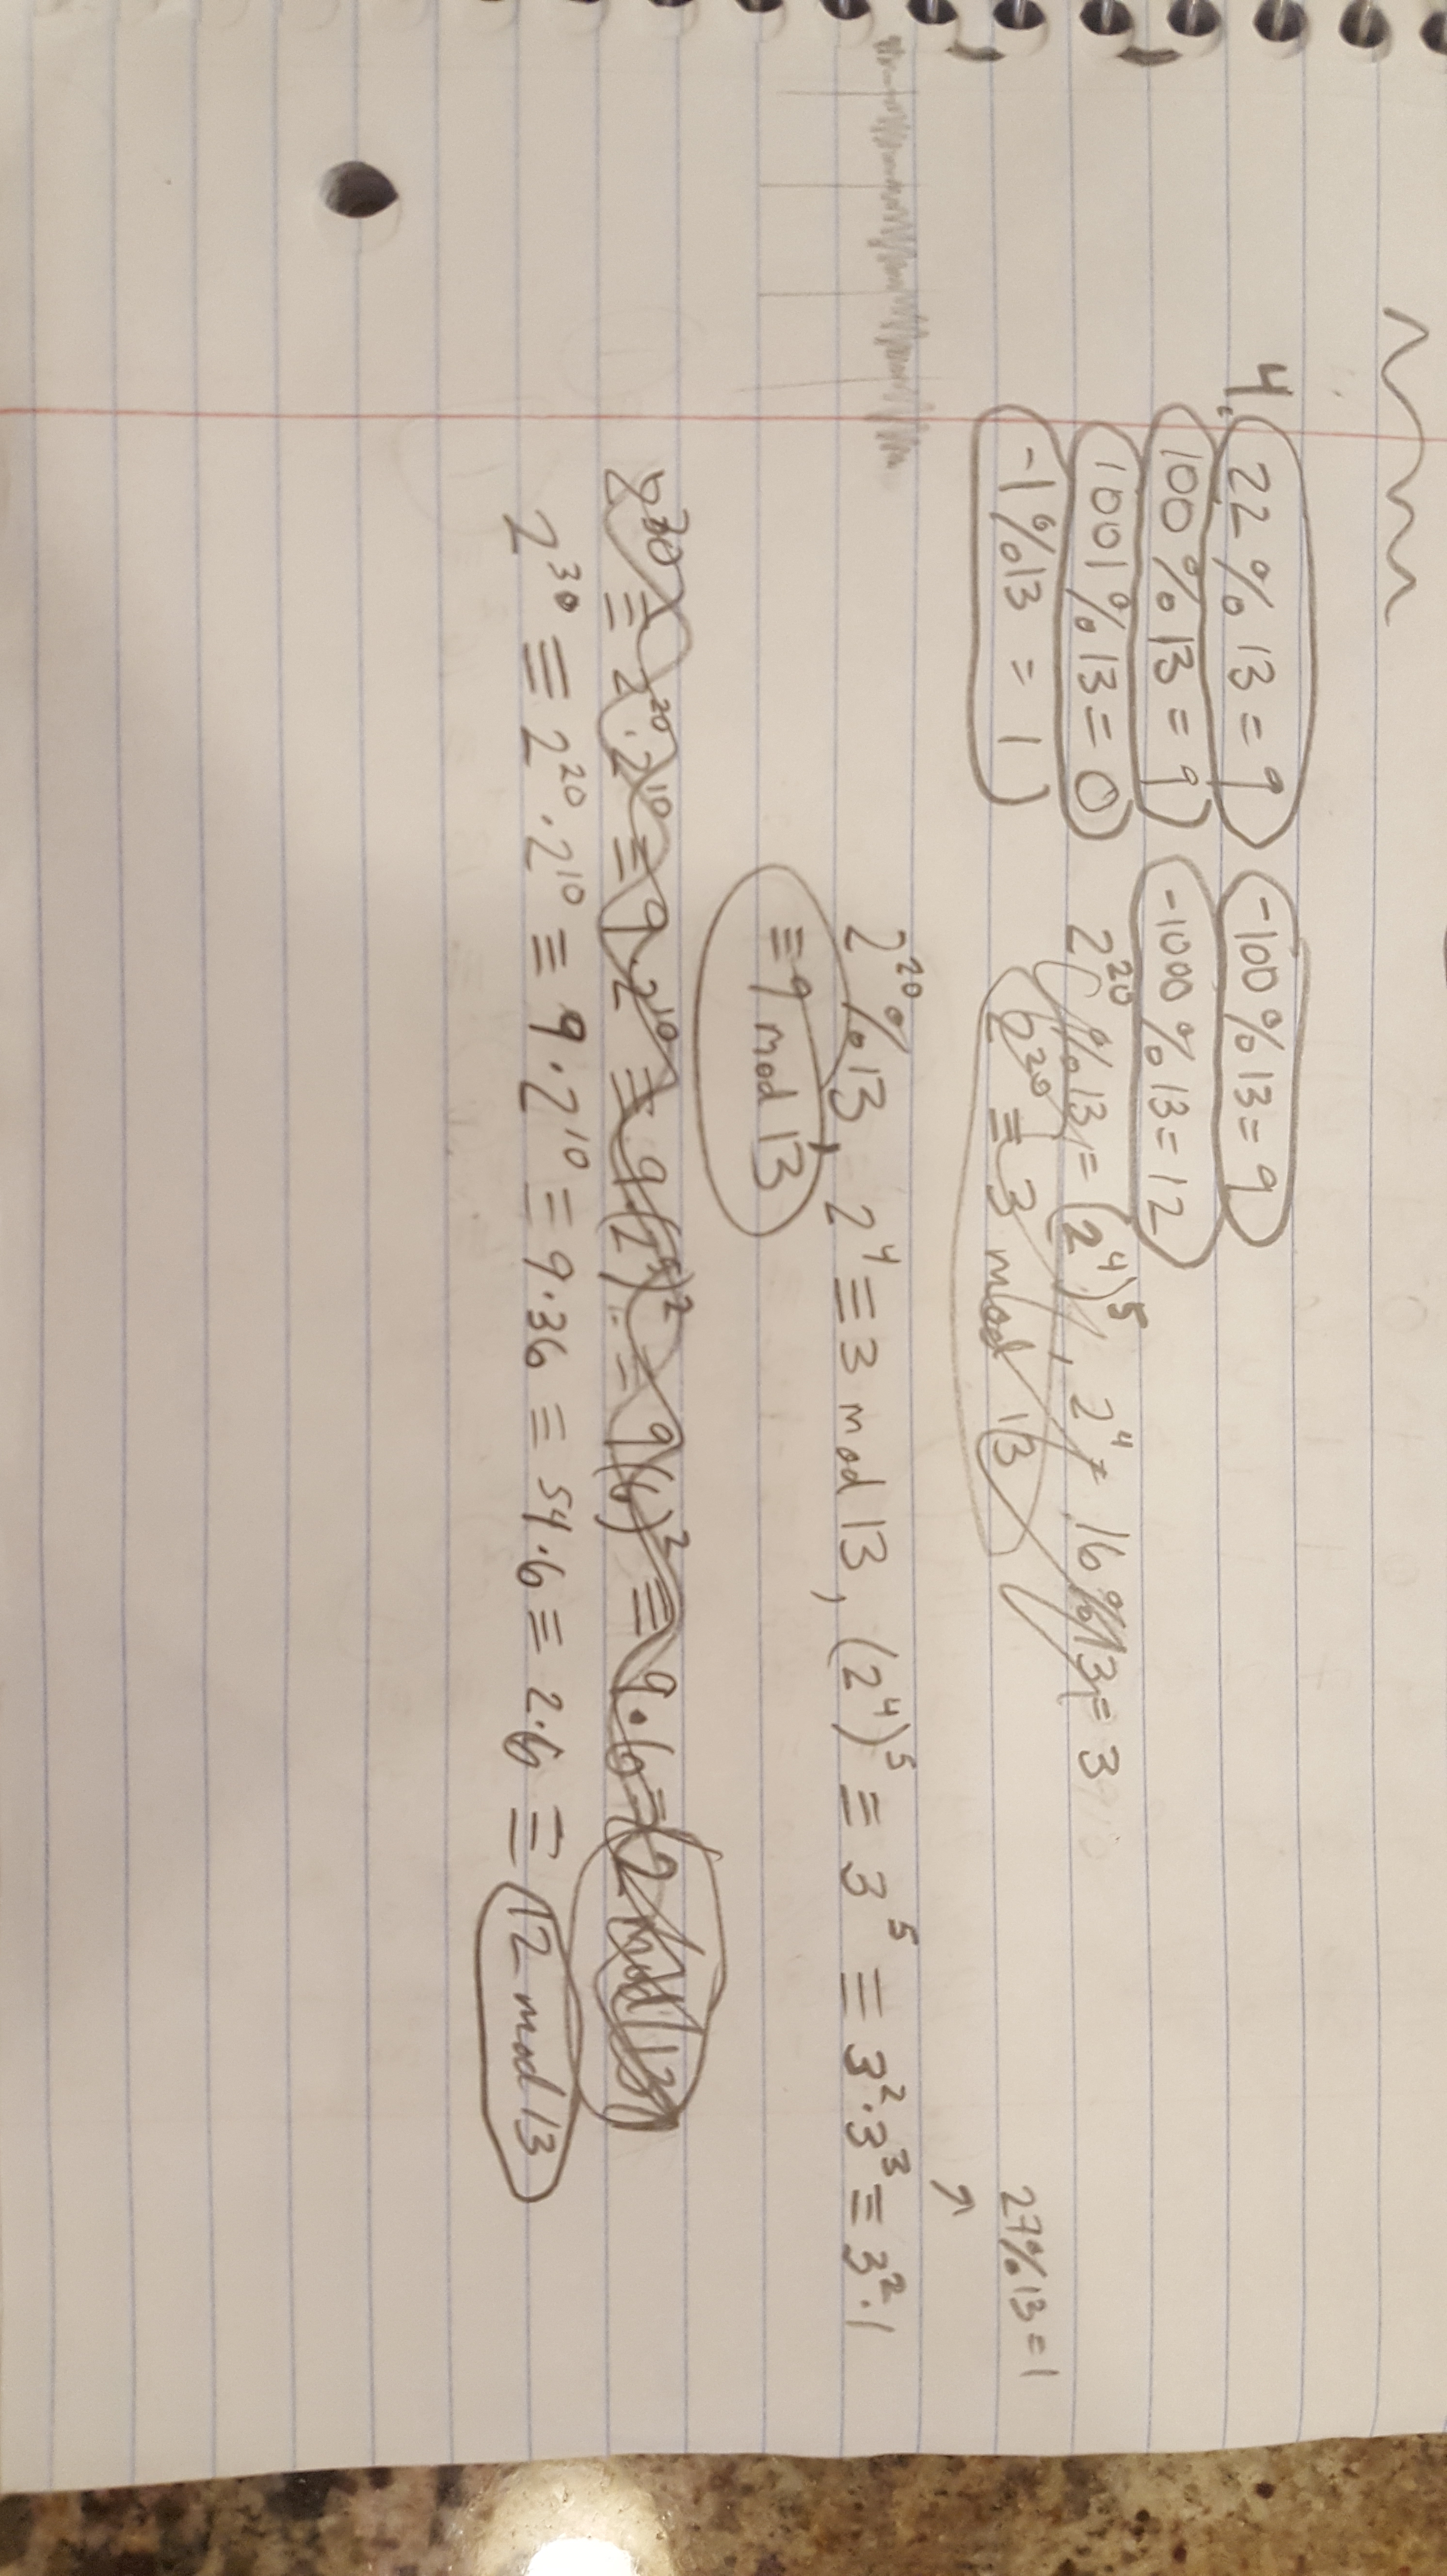 4. 22 % 13 = 9 -100 % 13 = 9
100 % 13 = 9 -1000 % 13 = 12
1001 % 13 = 0 2²⁰ % 13 = (2⁴)⁵, 2⁴ = 16 % 13 = 3
-1 % 13 = 1 2²⁰ ≡ 3 mod 13 27 % 13 = 1
2²⁰ % 13, 2⁴ ≡ 3 mod 13, (2⁴)⁵ ≡ 3⁵ ≡ 3²·3³ ≡ 3²·1
≡ 9 mod 13
2³⁰ ≡ 2²⁰·2¹⁰ ≡ 9·2¹⁰ ≡ 9(2⁵)² ≡ 9(6)² ≡ 9·6 = 2 mod 13
2³⁰ ≡ 2²⁰·2¹⁰ ≡ 9·2¹⁰ ≡ 9·36 ≡ 54·6 ≡ 2·6 ≡ 12 mod 13